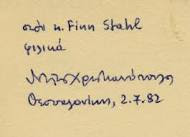 στόν κ. Finn Stahl
φιλικά
Ντ. Χριστιανόπουλος
Θεσσαλονίκη, 2.7.82